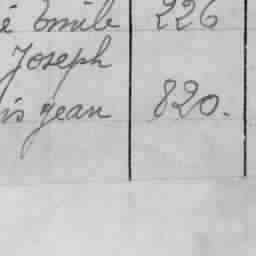 é Emile 226
Joseph
is Jean 820.